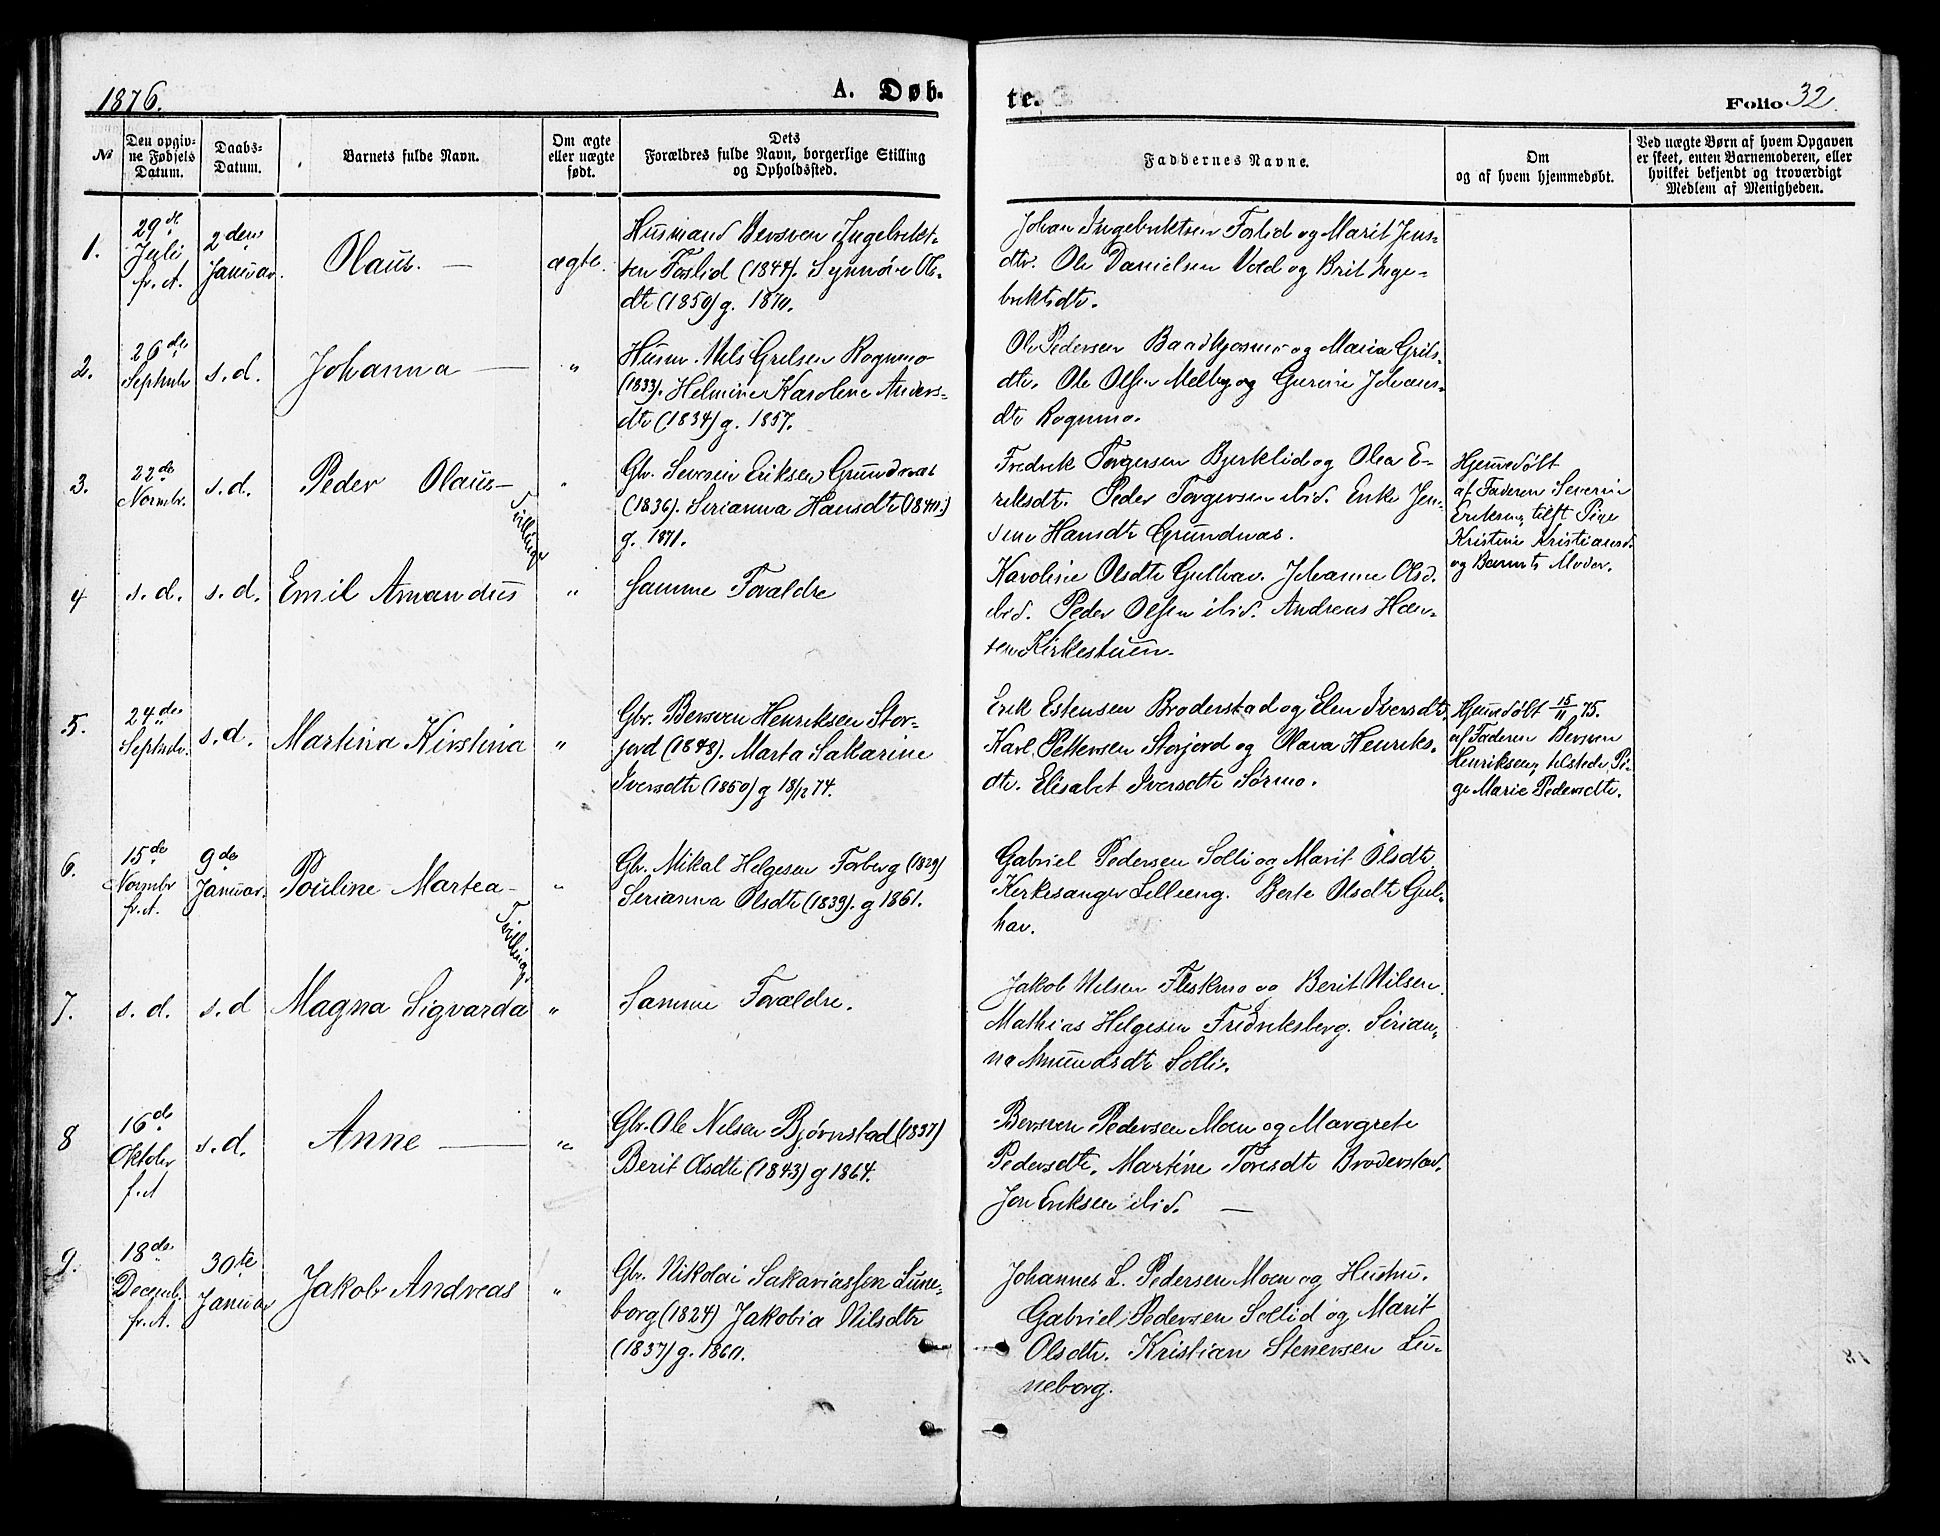 1876.
A. Døb-
te.
Folio 32.
№
Den opgiv-
ne Fødsels
Datum.
Daabs-
Datum.
Barnets fulde Navn.
Om ægte
eller uægte
født.
Dets
Forældres fulde Navn, borgerlige Stilling
og Opholdssted.
Faddernes Navne.
Om
og af hvem hjemmedøbt.
Ved uægte Børn af hvem Opgaven
er skeet, enten Barnemoderen, eller
hvilket bekjendt og troværdigt
Medlem af Menigheden.
1.
29de
Juli
fr. A.
2den
Januar.
Olaus. —
ægte.
Husmand Bersven Ingebrikt-
sen Foslid (1844). Synnøve Ols-
dtr (1850) g. 1870.
Johan Ingebriktsen Foslid og Marit Jens-
dtr. Ole Danielsen Vold og Brit Inge-
briktsdtr.
2.
26de
Septmbr
s. d.
Johanna —
"
Husm. Nels Grelsen Rognmo
(1833). Helmine Karoline Anders-
dtr (1834) g. 1857.
Ole Pedersen Baadkjosmo og Maria Grils-
dtr. Ole Olsen Melby og Gurine Johans-
dtr Rognmo.
3.
22de
Novmbr.
s. d.
Peder Olaus —
Tvillinge
"
Gbr. Severin Eriksen Grundvas
(1836). Serianna Hansdtr (1840.)
g. 1871.
Fredrik Torgersen Bjerklid og Olea E-
riksdt. Peder Torgersen ibid. Enke Jen-
sine Hansdtr Grundvas.
Hjemmedøbt
af Faderen Severin
Eriksen, tilst Pige
Kristine Kristiansd.
og Barnets Moder.
4
s. d.
s. d.
Emil Amandus
"
Samme Forældre
Karoline Olsdtr Gulhav. Johanne Olsd.
ibid. Peder Olsen ibid. Andreas Han-
sen Kirkestuen.
5.
24de
Septmbr.
s. d.
Martina Kirstina
"
Gbr. Bersven Henriksen Stor-
jord (1848). Marta Sakarine
Iversdtr (1850) g 18/12 74.
Erik Estensen Broderstad og Elen Iversdtr.
Karl Pettersen Storjord og Olava Henriks-
dtr. Elisabet Iversdtr Sørmo.
Hjemmedøbt 15/11 75.
af Faderen Bersven
Henriksen, tilstede Pi-
ge Marie Pedersdtr.
6.
15de
Novmbr
fr. A.
9de
Januar.
Pouline Martea —
Tvillinge
"
Gbr. Mikal Helgesen Forberg (1829)
Serianna Olsdtr (1839). g 1861.
Gabriel Pedersen Solli og Marit Olsdtr
Kirkesanger Lillieng. Berte Olsdtr Gul-
hav.
7.
s. d.
s. d
Magna Sigvarda
"
Samme Forældre.
Jakob Nilsen Fleskmo og Berit Nilsen.
Mathias Helgesen Fredriksberg. Serian-
na Amundsdtr Solli.
8
16de
Oktobr
f. A
s. d.
Anne —
"
Gbr. Ole Nilsen Bjørnstad (1837)
Berit Olsdtr (1843) g 1864.
Bersven Pedersen Moen og Margrete
Pedersdtr. Martine Toresdtr Broderstad.
Jon Eriksen ibid. —
9.
18de
Decemb.
fr. A.
30te
Januar
Jakob Andreas
"
Gbr. Nikolai Sakariassen Lune-
borg (1824) Jakobia Nilsdtr
(1837) g. 1860.
Johannes L. Pedersen Moen og Hustru.
Gabriel Pedersen Sollid og Marit
Olsdtr. Kristian Stenersen Lu-
neborg.